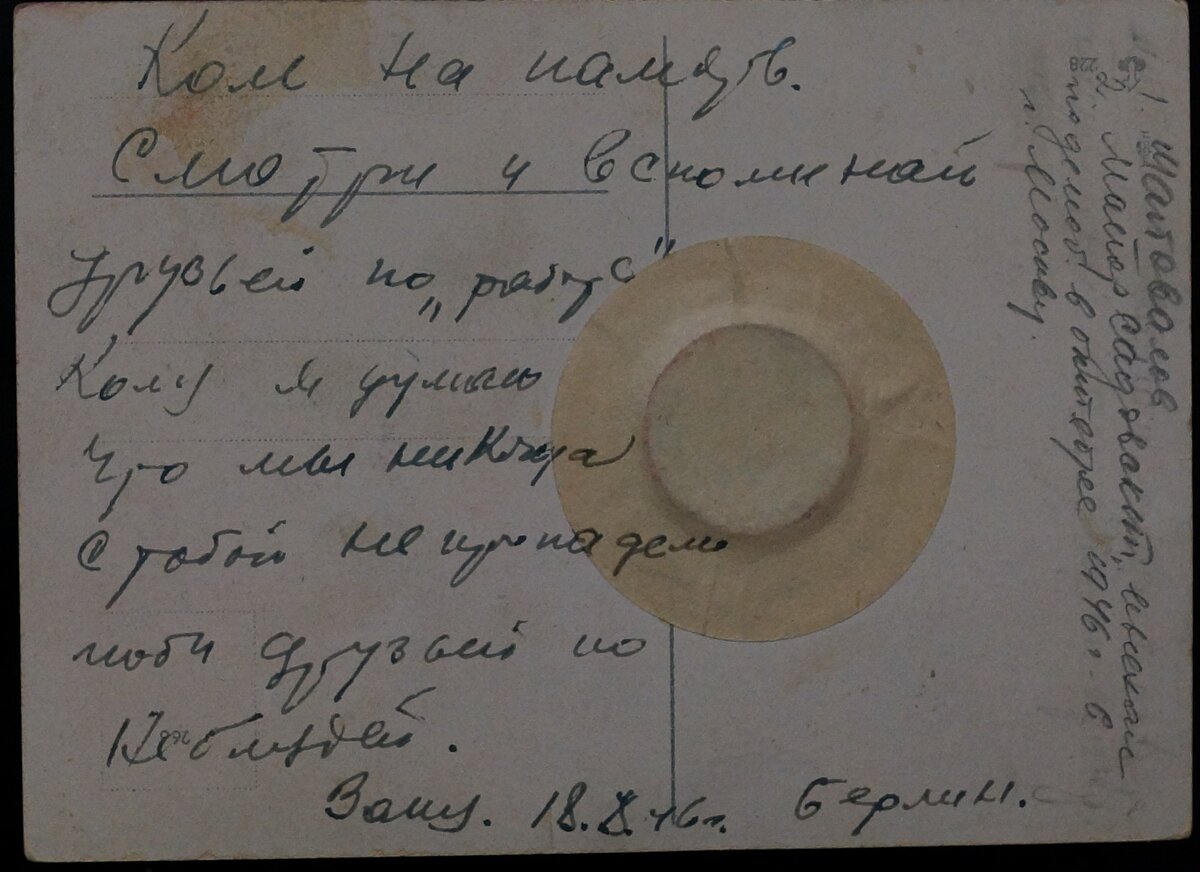 Коле на память.
Смотри и вспоминай
друзей по „работе"
Коля я думаю
что мы никогда
с тобой не пропадем
люби друзей по
Не блудей.
18.X.46г. Берлин.
1. Шаповалов
2. Майор
в октябре 1946г. в
г. Москву.
228